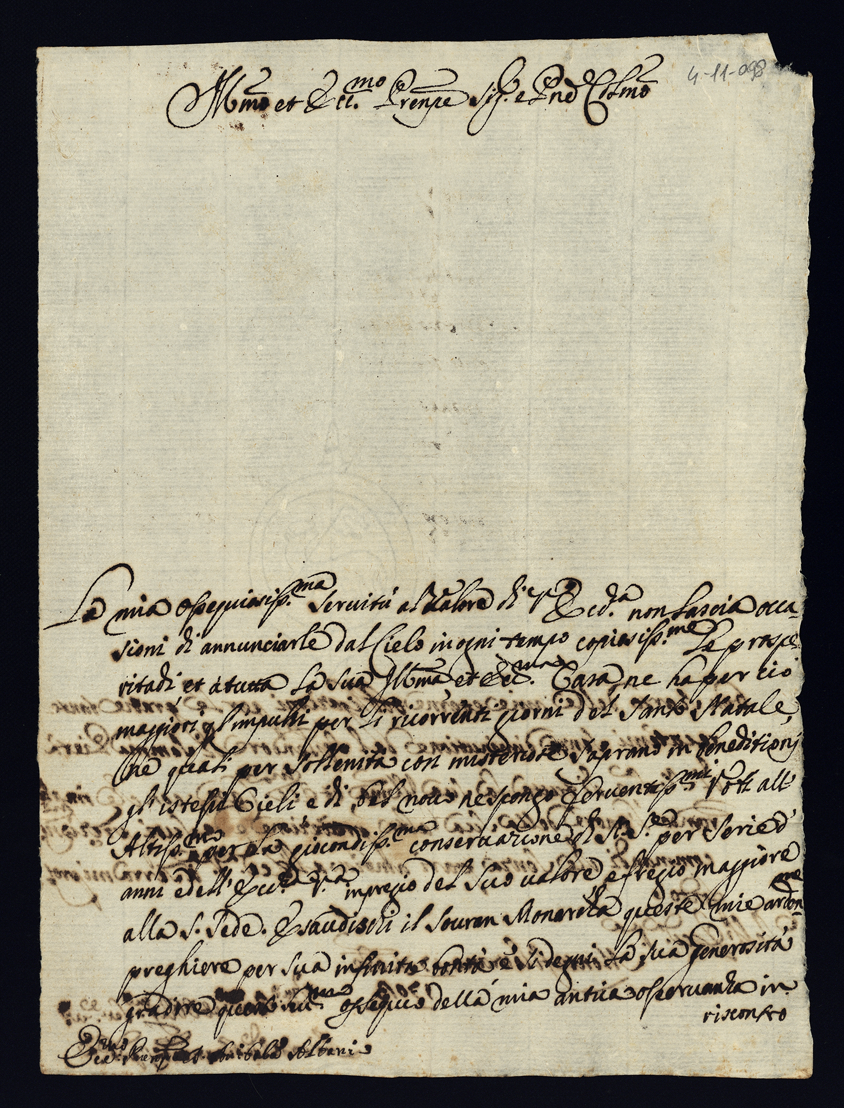 4-11-098
Ill.mo et Ecc.mo Prenpe Sig.r e Pne Col.mo
La mia ossequiosiss.ma servitù al valore di V. Ecc.da non lascia occa-
sioni di annunciarle dal Cielo in ogni tempo copiosiss.me le prospe-
ritadi et à tutta la sua Ill.ma et Ecc.ma Casa, ne ha per ciò
maggiori gl'impulsi per li ricorrenti giorni del Santo Natale,
ne quali per sollenità con misteriose in beneditioni
gl'istessi Cieli e di bel novo ne spongo ferventiss.mi voti all'
Altiss.mo per la giocondiss.ma conservazione di per serie d'
anni e dell' Ecc. V. in pregio del suo valore e fregio maggiore
alla S. Sede. Esaudischi il Souran Monarcha queste mie
preghiere per sua infinita bontà e si degni la sua generosità
gradire ossequio della mia antica osservanza in
riscontro
Annibale Albani